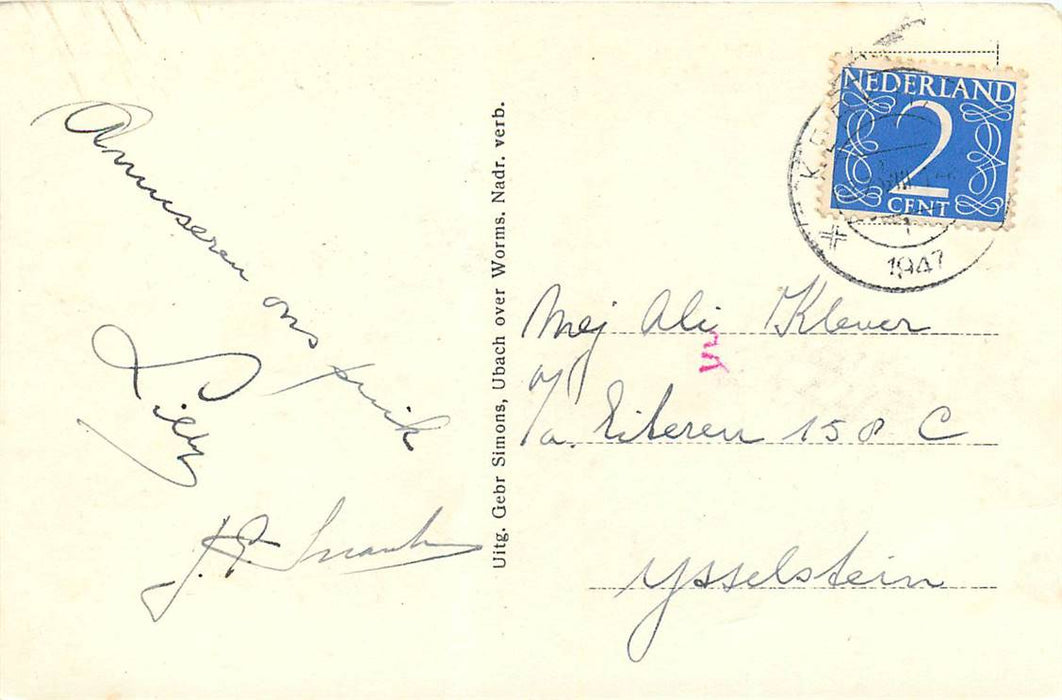 Amuseren ons puik
Lilly
J. E.
Uitg. Gebr Simons, Ubach over Worms. Nadr. verb.
NEDERLAND
2
CENT
1947
Mej Ali Klever
p/a. Eiteren 158 C
Ysselstein